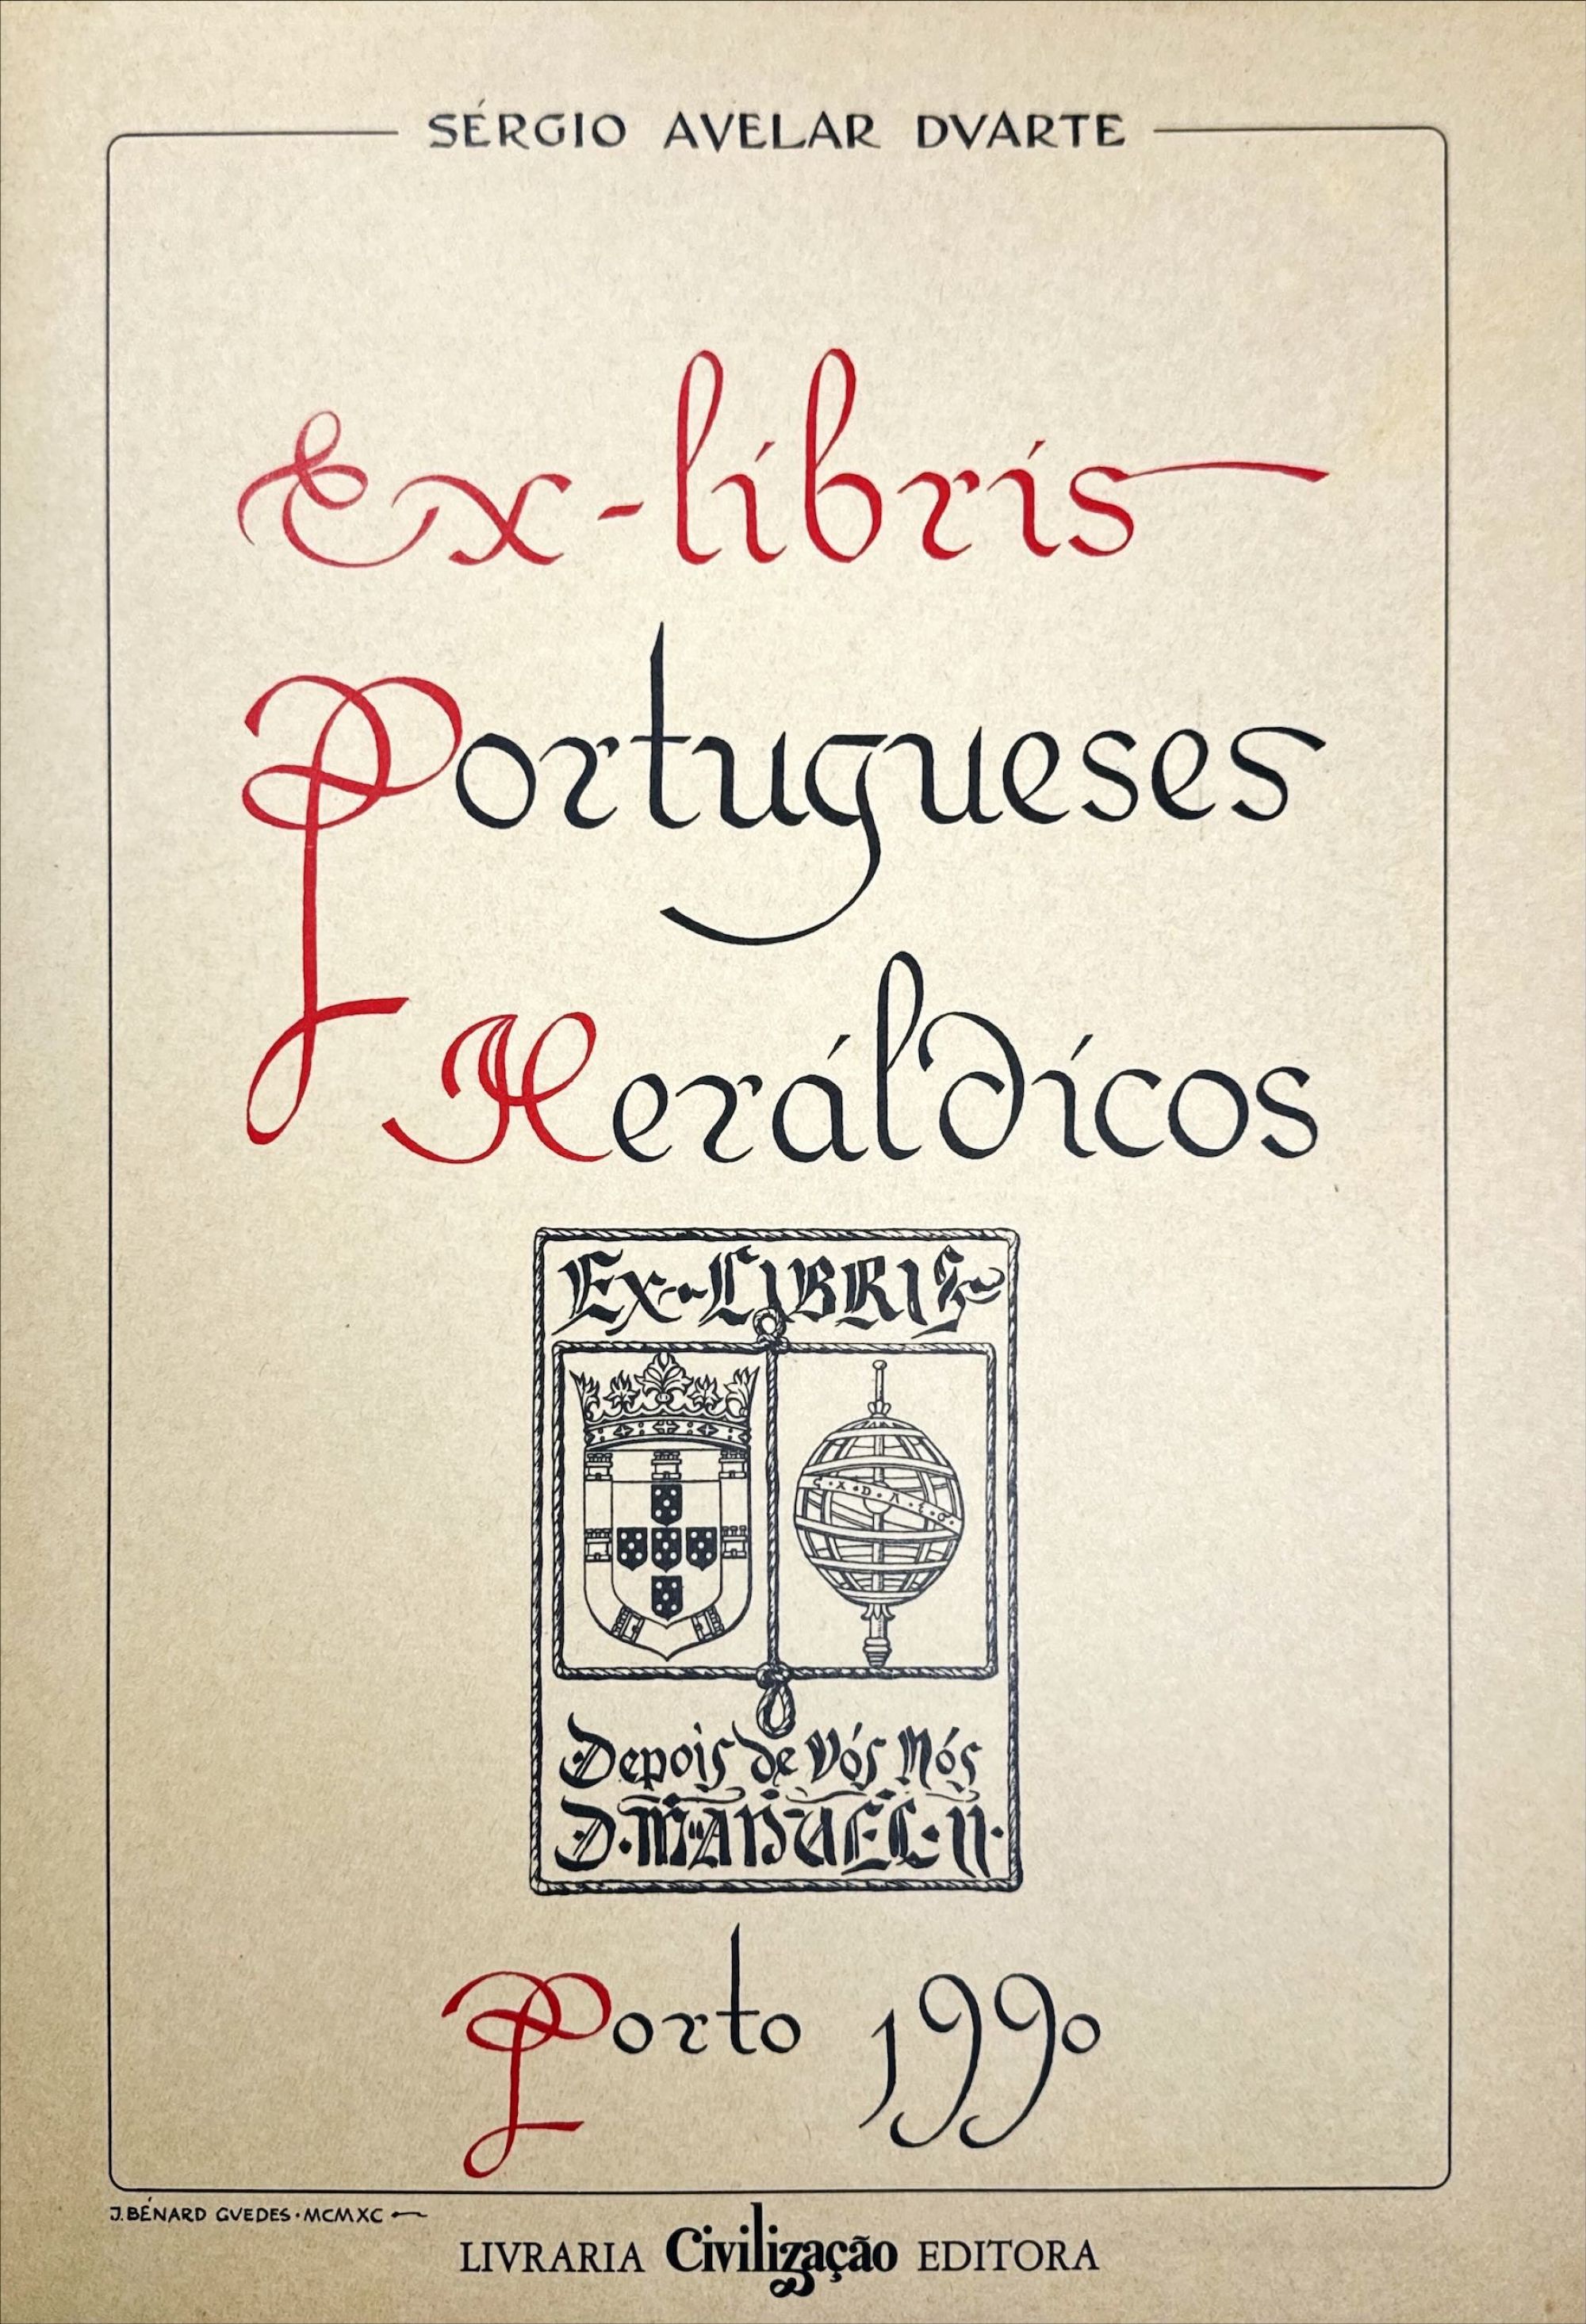 SÉRGIO AVELAR DVARTE
Ex-libris
Portugueses
Heráldicos
Ex-LIBRIS
Depois de Vós Nós
D. MANUEL · II ·
Porto 1990
J. BÉNARD GVEDES · MCMXC
LIVRARIA Civilização EDITORA